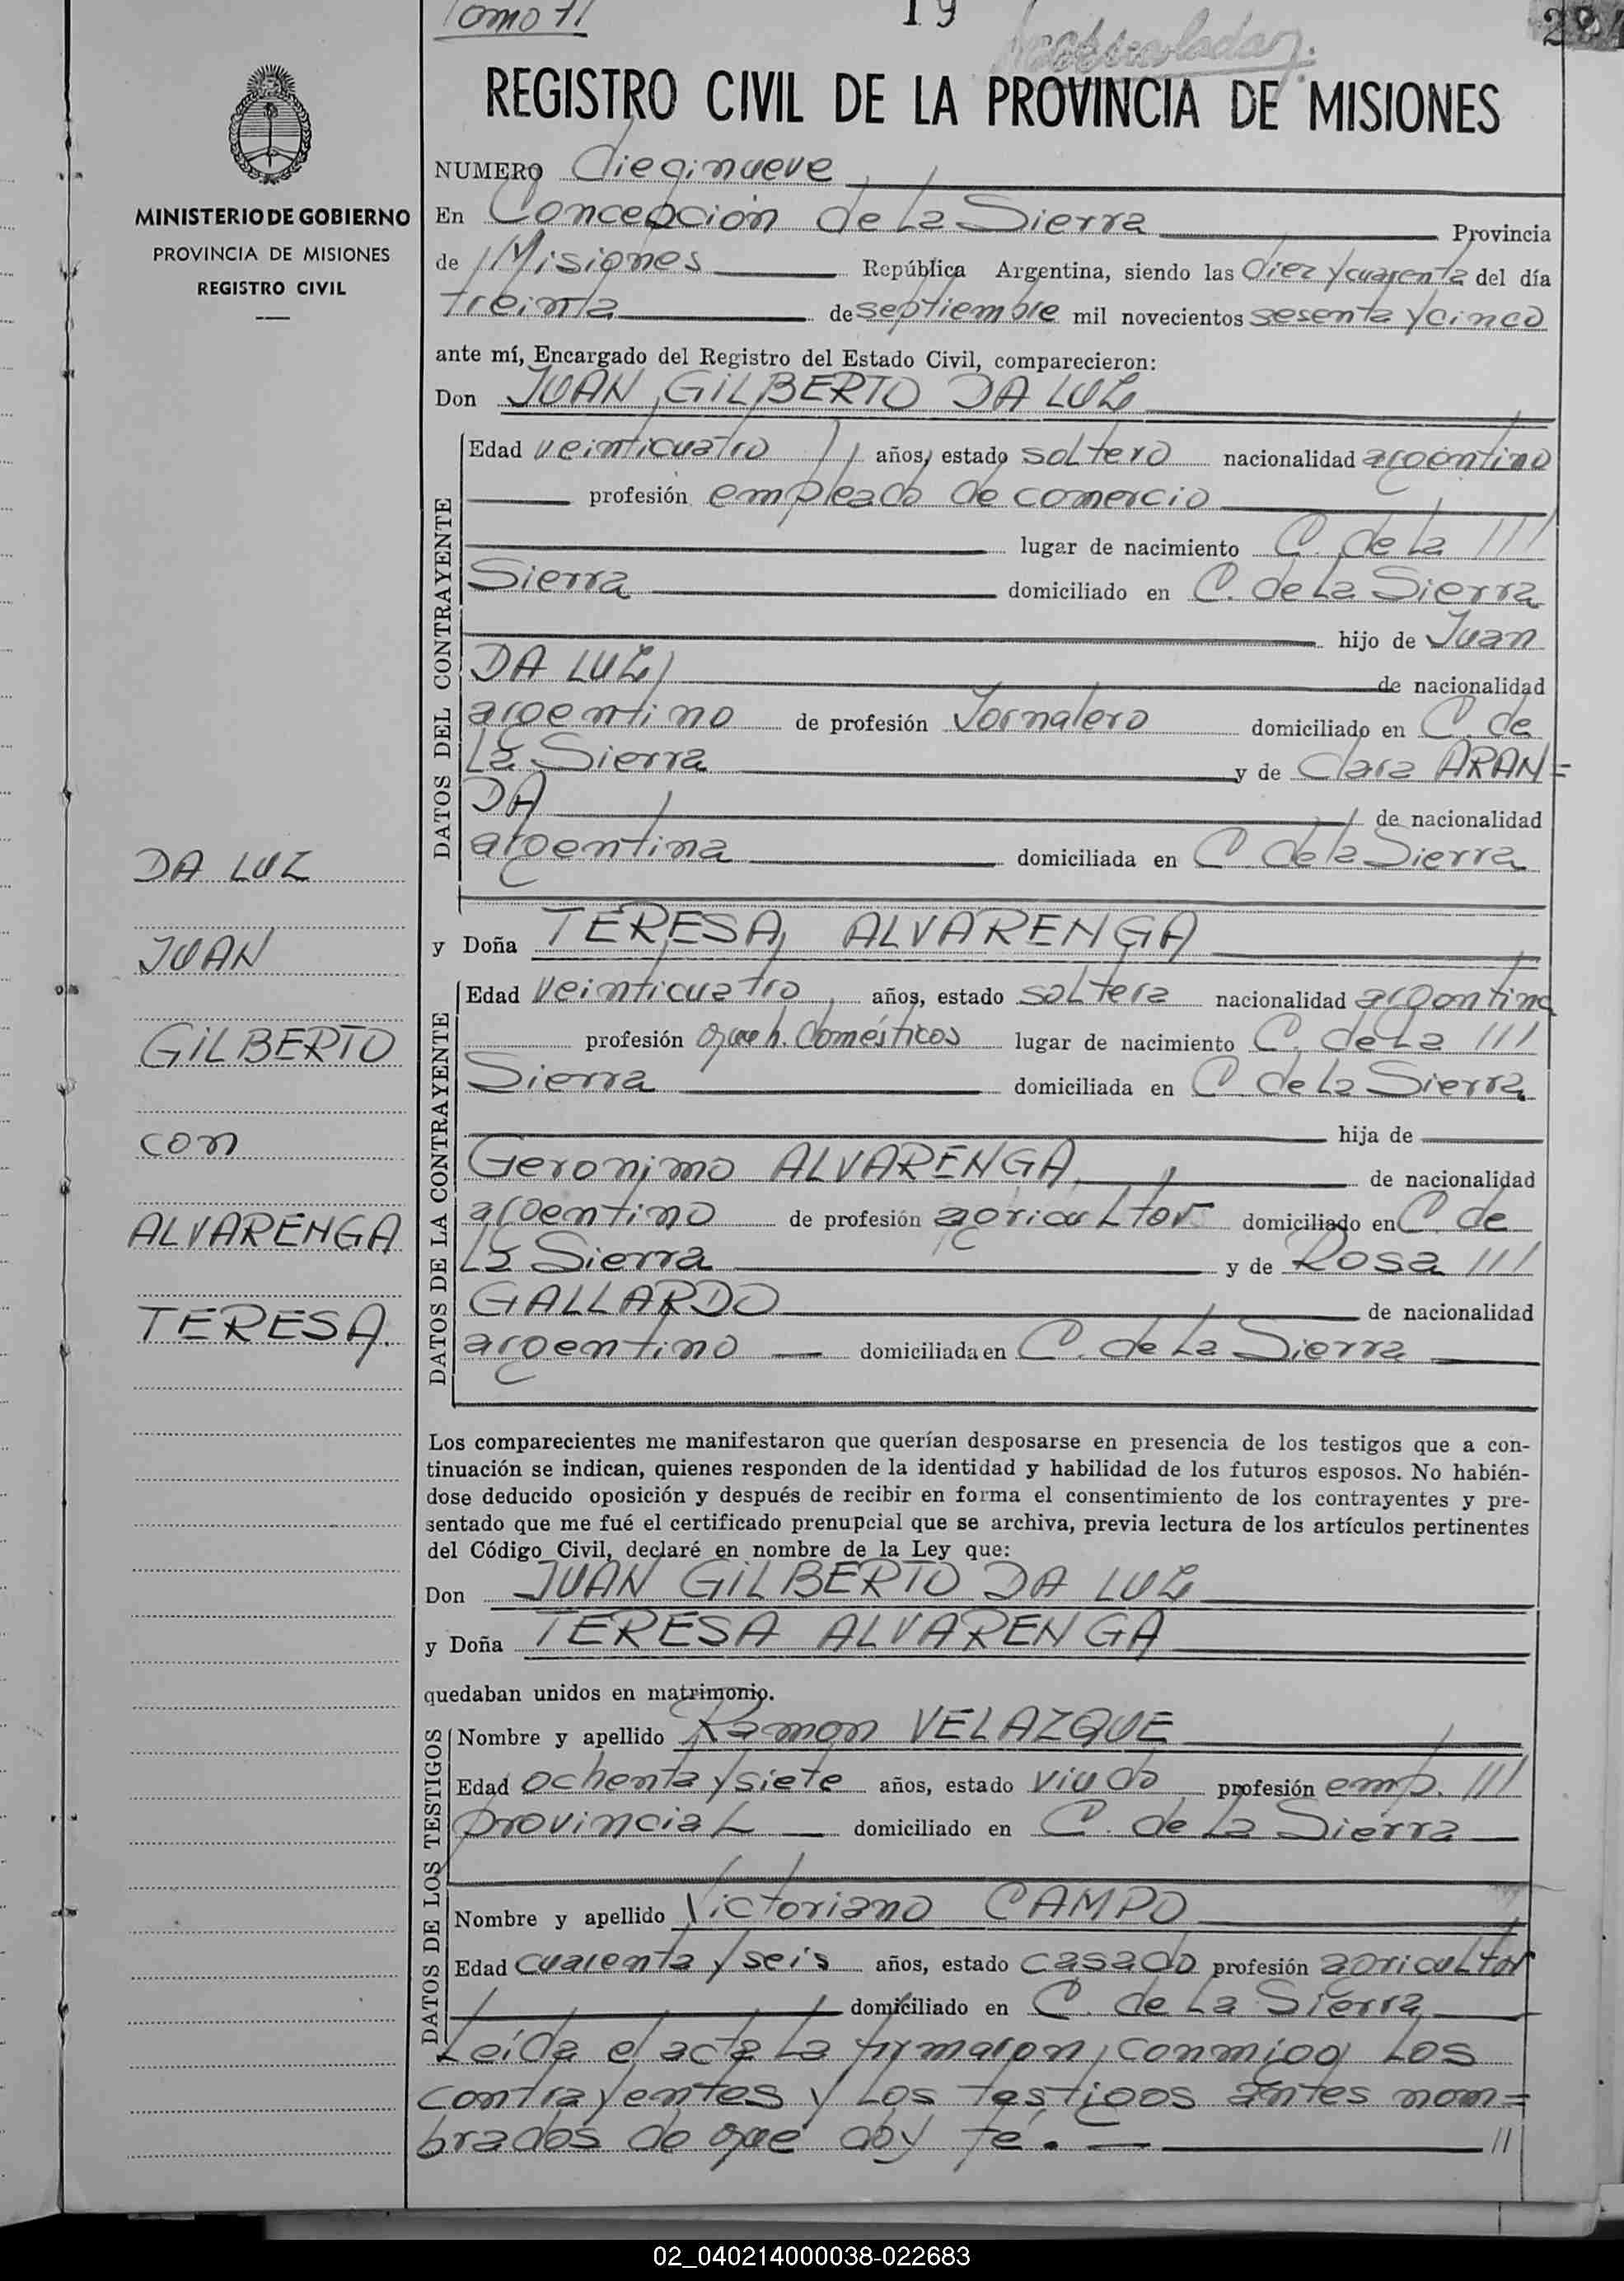 Tomo II
19
MINISTERIO DE GOBIERNO
PROVINCIA DE MISIONES
REGISTRO CIVIL
DA LUZ
JUAN
GILBERTO
con
ALVARENGA
TERESA.
REGISTRO CIVIL DE LA PROVINCIA DE MISIONES
NUMERO diecinueve
En Concepción de La Sierra Provincia
de Misiones República Argentina, siendo las diez y cuarenta del día
treinta de septiembre mil novecientos sesenta y cinco
ante mí, Encargado del Registro del Estado Civil, comparecieron:
Don JUAN GILBERTO DA LUZ
DATOS DEL CONTRAYENTE
Edad veinticuatro años, estado soltero nacionalidad argentino
profesión empleado de comercio
lugar de nacimiento C. de La ///
Sierra domiciliado en C. de La Sierra
hijo de Juan
DA LUZ de nacionalidad
argentino de profesión Jornalero domiciliado en C. de
La Sierra y de Clara ARAN=
DA de nacionalidad
argentina domiciliada en C de la Sierra
y Doña TERESA ALVARENGA
DATOS DE LA CONTRAYENTE
Edad veinticuatro años, estado soltera nacionalidad argentina
profesión queh. domésticos lugar de nacimiento C. de La ///
Sierra domiciliada en C de La Sierra
hija de
Geronimo ALVARENGA de nacionalidad
argentino de profesión agricultor domiciliado en C. de
La Sierra y de Rosa ///
GALLARDO de nacionalidad
argentino domiciliada en C. de La Sierra
Los comparecientes me manifestaron que querían desposarse en presencia de los testigos que a con-
tinuación se indican, quienes responden de la identidad y habilidad de los futuros esposos. No habién-
dose deducido oposición y después de recibir en forma el consentimiento de los contrayentes y pre-
sentado que me fué el certificado prenupcial que se archiva, previa lectura de los artículos pertinentes
del Código Civil, declaré en nombre de la Ley que:
Don JUAN GILBERTO DA LUZ
y Doña TERESA ALVARENGA
quedaban unidos en matrimonio.
DATOS DE LOS TESTIGOS
Nombre y apellido Ramon VELAZQUE
Edad ochenta y siete años, estado viudo profesión emp. ///
provincial domiciliado en C. de La Sierra
DATOS DE LOS TESTIGOS
Nombre y apellido Victoriano CAMPO
Edad cuarenta y seis años, estado casado profesión agricultor
domiciliado en C. de La Sierra
Leída el acta La firmaron conmigo Los
contrayentes y Los testigos antes nom=
brados de que doy fé. //
02_040214000038-022683